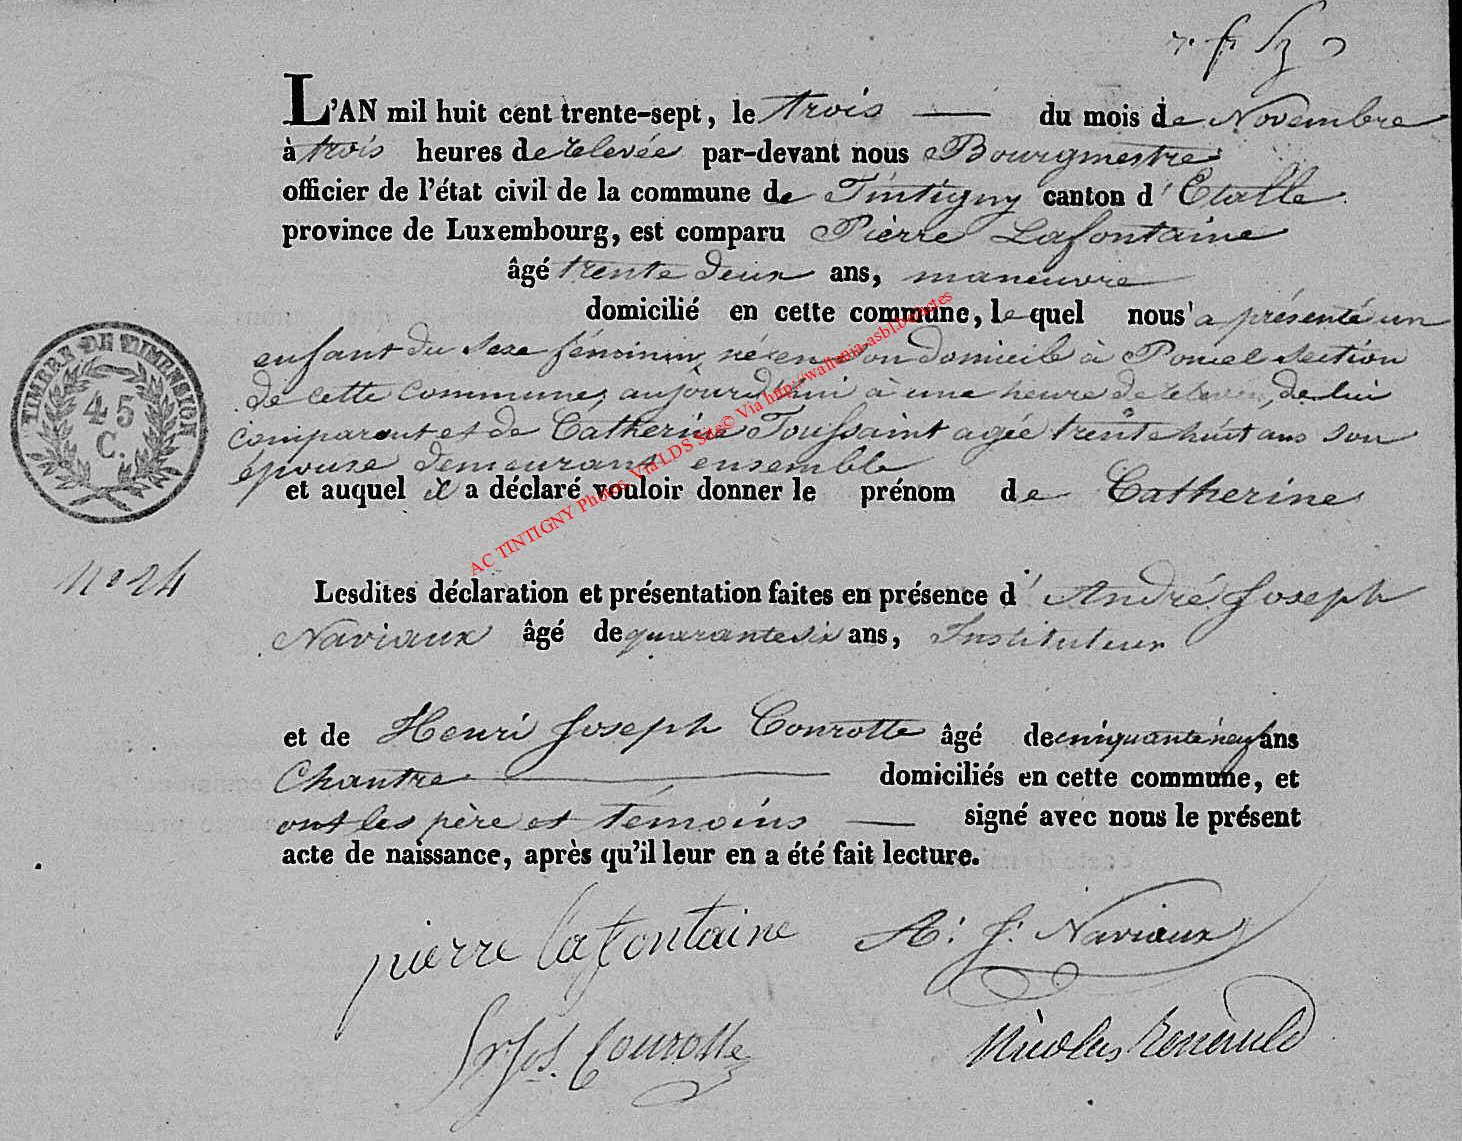 L'AN mil huit cent trente-sept, le trois du mois de Novembre
à trois heures de relevée par-devant nous Bourgmestre
officier de l'état civil de la commune de Tintigny canton d'Etalle
province de Luxembourg, est comparu Pierre Lafontaine
âgé trente deux ans, maneuvre
domicilié en cette commune, lequel nous a présenté un
enfant du sexe féminin, né en son domicile à Poncel section
de cette commune, aujourd'hui à une heure de relevée, de lui
comparant et de Catherine Toussaint agée trente huit ans son
épouse demeurant ensemble
et auquel il a déclaré vouloir donner le prénom de Catherine
TIMBRE DE DIMENSION
45
C.
N° 24
Lesdites déclaration et présentation faites en présence d'André Joseph
Naviaux âgé de quarante six ans, Instituteur
et de Henri Joseph Courotte âgé de cinquante neuf ans
Chantre domiciliés en cette commune, et
ont les père et témoins signé avec nous le présent
acte de naissance, après qu'il leur en a été fait lecture.
pierre lafontaine A. J. Naviaux
Courotte Nicolas Renauld
AC TINTIGNY Photos Via LDS Site© Via http://wallonia-asbl.be/actes